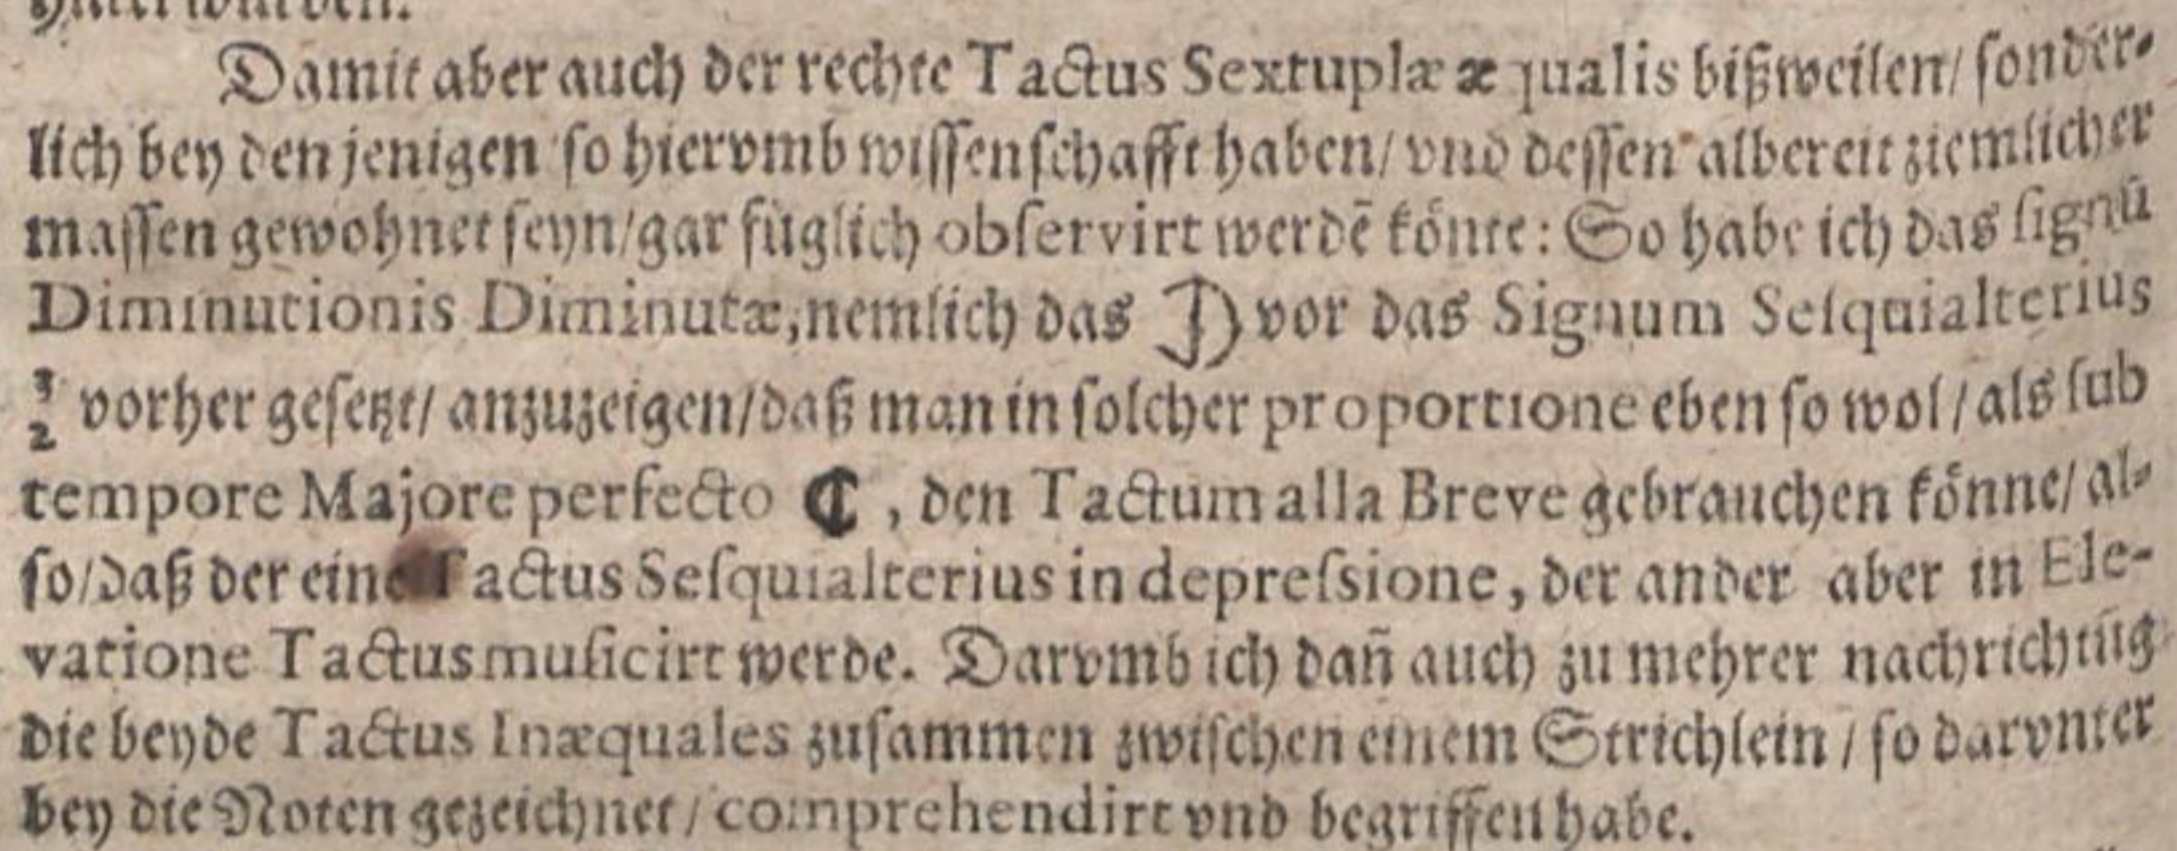 Damit aber auch der rechte Tactus Sextuplæ æqualis bißweilen/ ſonder⸗
lich bey den jenigen ſo hiervmb wiſſenſchafft haben/ vnd deſſen albereit ziemlicher
maſſen gewohnet ſeyn/gar füglich obſervirt werdẽ könte: So habe ich das ſignũ
Diminutionis Diminutæ, nemlich das vor das Signum Seſquialterius
3/2 vorher geſetzt/ anzuzeigen/daß man in ſolcher proportione eben ſo wol/als ſub
tempore Majore perfecto ₵, den Tactum alla Breve gebrauchen könne/ al⸗
ſo/daß der eine Tactus Seſquialterius in depreſsione, der ander aber in Ele-
vatione Tactus muſicirt werde. Darvmb ich dañ auch zu mehrer nachrichtũg
die beyde Tactus Inæquales zuſammen zwiſchen einem Strichlein / ſo darvnter
bey die Noten gezeichnet / comprehendirt vnd begriffen habe.